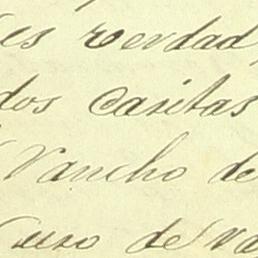 es verdad
dos casitas
Rancho de